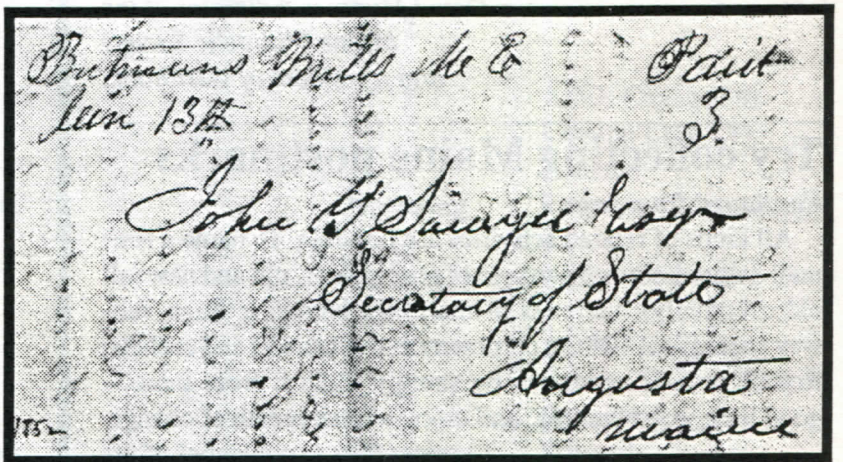 Butmans Mills Me Paid
Jan 13th 3
John G Sawyer Esqr
Secretary of State
Augusta
Maine
1852